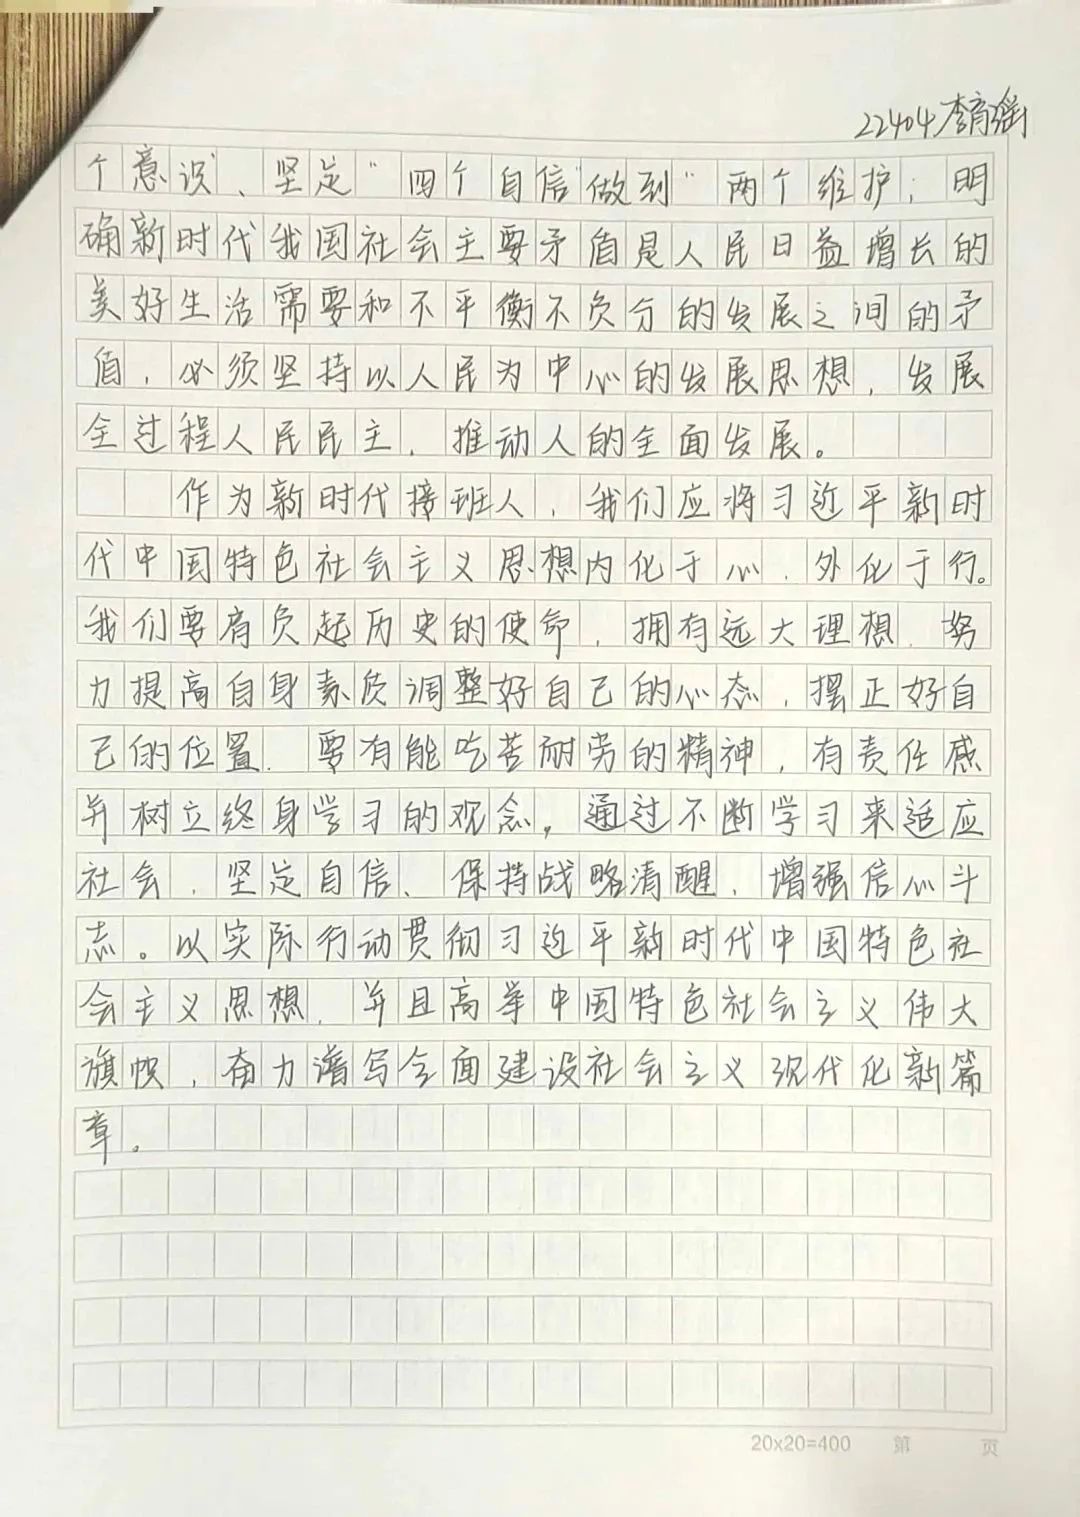 22404李育瑶
个意识"、坚定"四个自信"做到"两个维护；明
确新时代我国社会主要矛盾是人民日益增长的
美好生活需要和不平衡不负分的发展之间的矛
盾，必须坚持以人民为中心的发展思想，发展
全过程人民民主，推动人的全面发展。
作为新时代接班人，我们应将习近平新时
代中国特色社会主义思想内化于心、外化于行。
我们要肩负起历史的使命，拥有远大理想，努
力提高自身素质调整好自己的心态，摆正好自
己的位置、要有能吃苦耐劳的精神，有责任感
并树立终身学习的观念，通过不断学习来适应
社会，坚定自信、保持战略清醒，增强信心斗
志。以实际行动贯彻习近平新时代中国特色社
会主义思想，并且高举中国特色社会主义伟大
旗帜，奋力谱写全面建设社会主义现代化新篇
章。
20x20=400 第 页